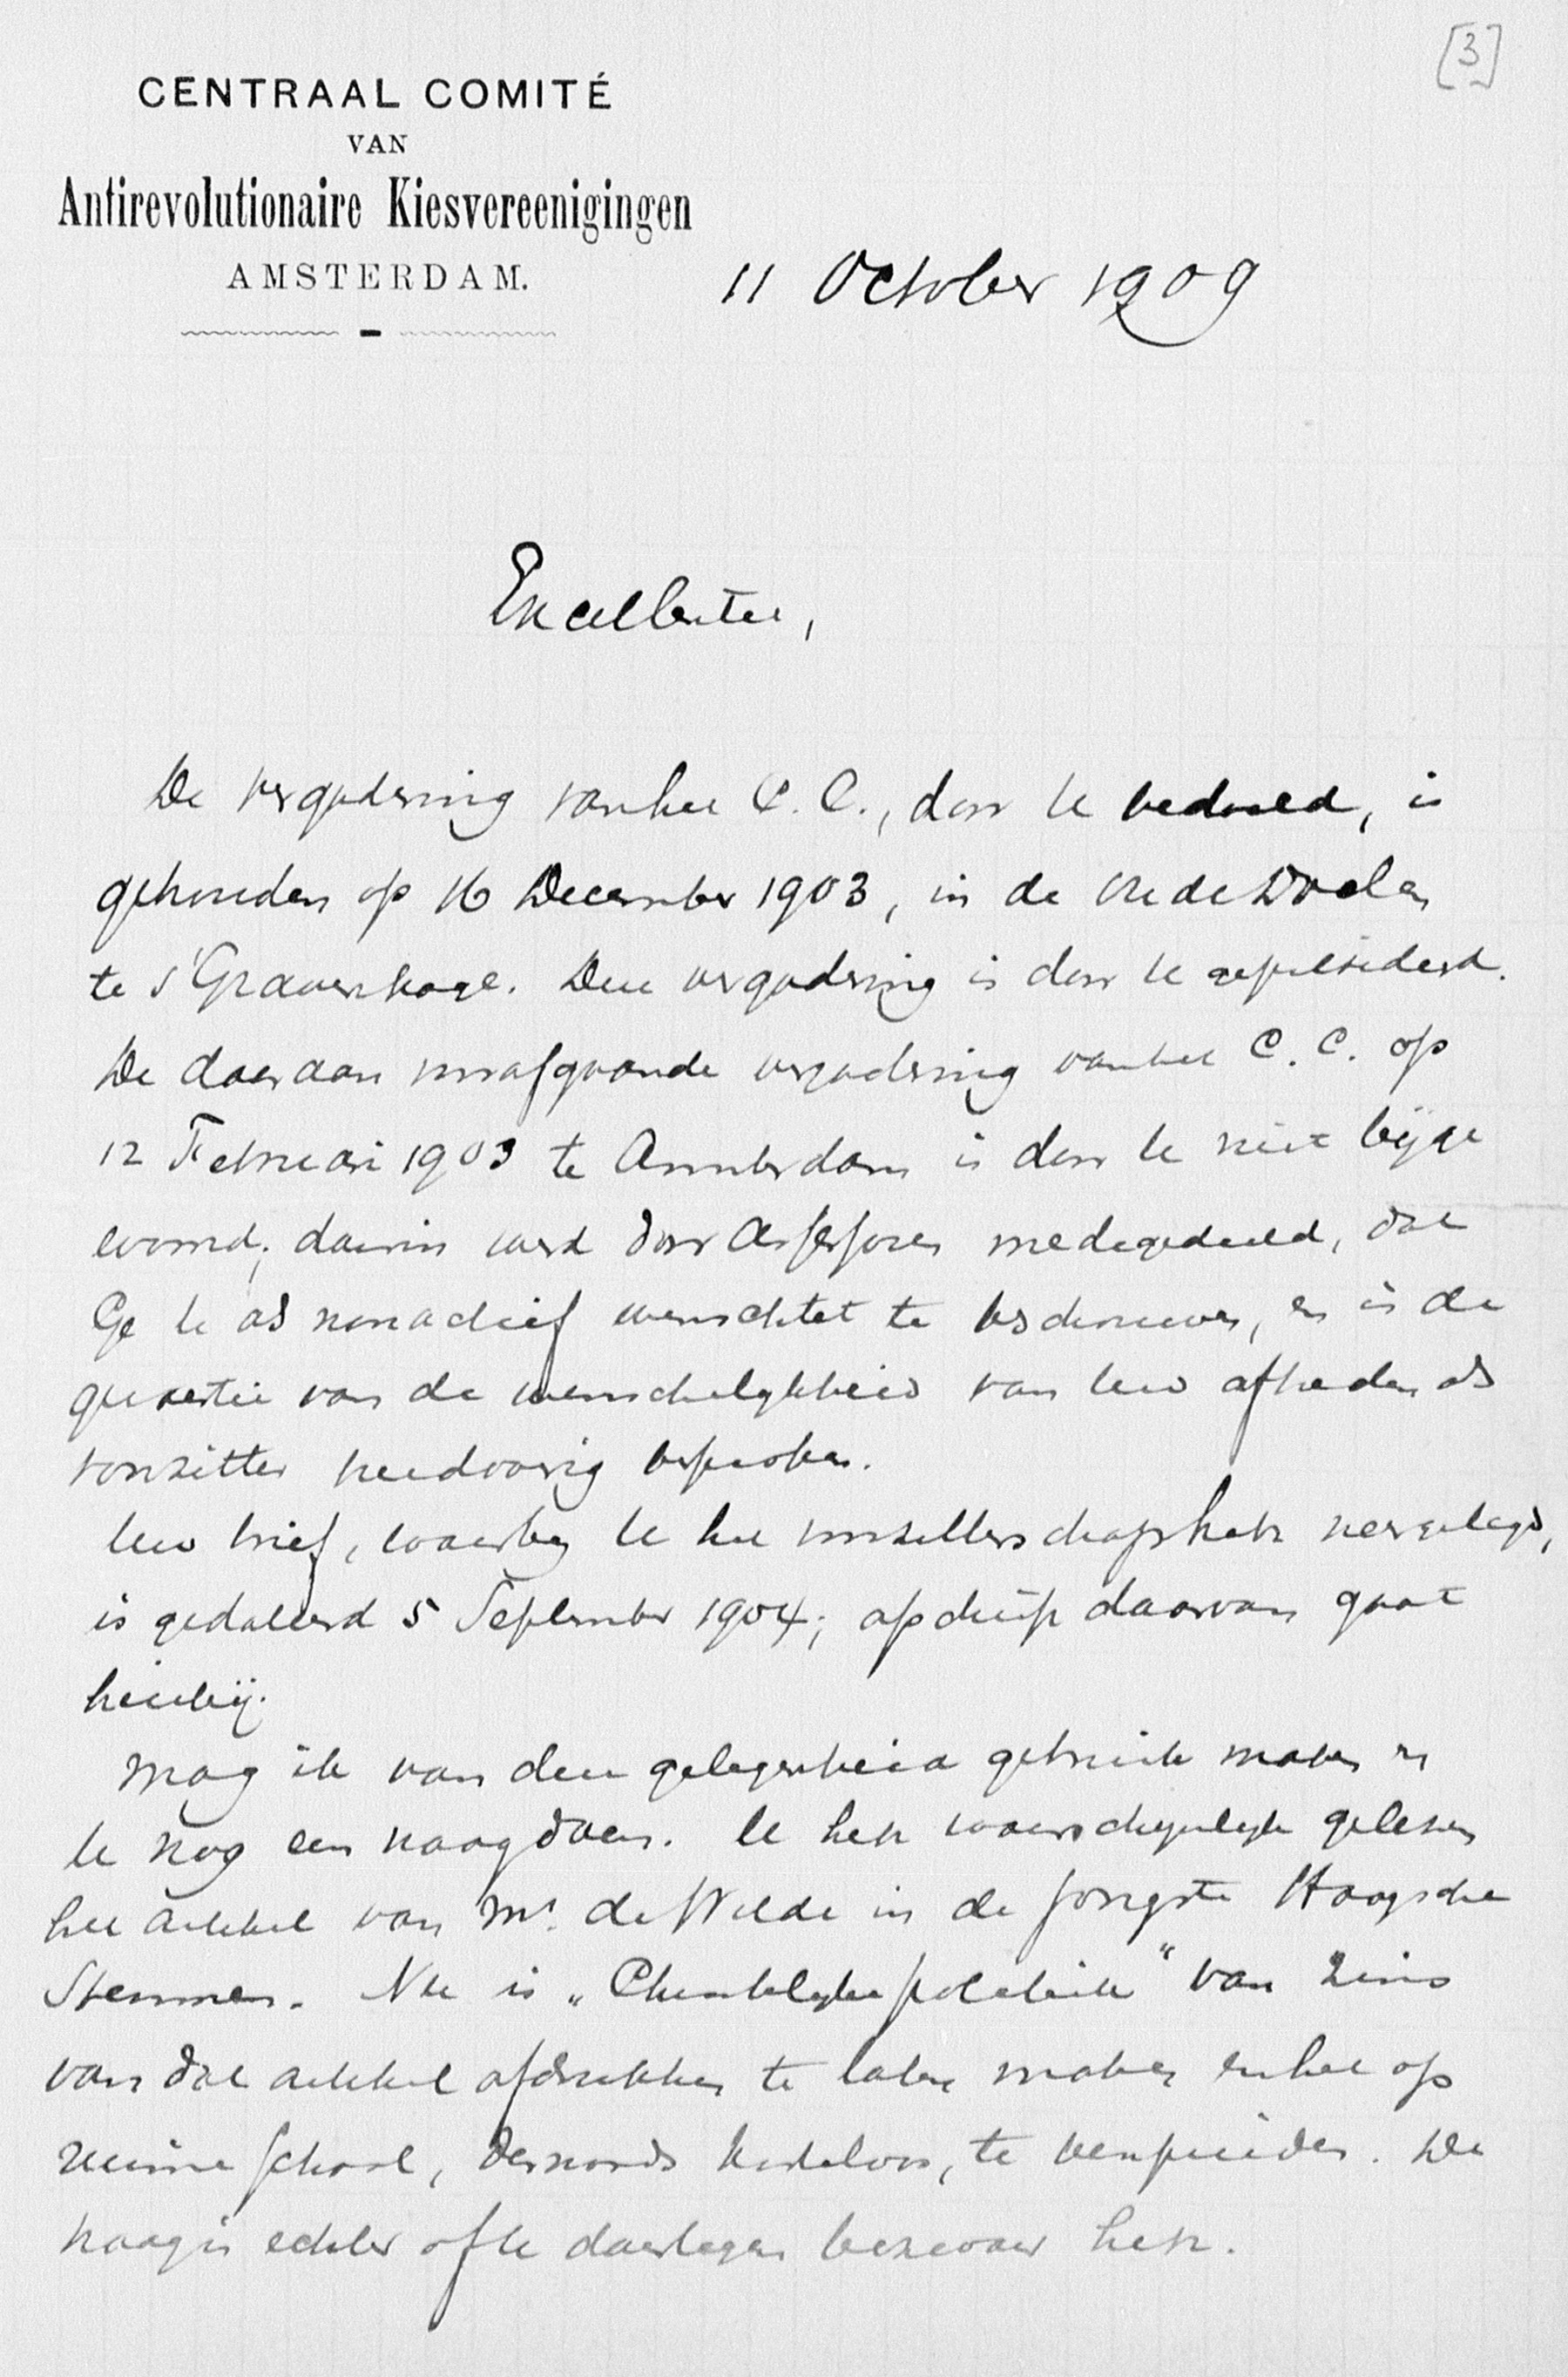 [3]
CENTRAAL COMITÉ
VAN
Antirevolutionaire Kiesvereenigingen
AMSTERDAM.
11 October 1909
Excellentie,
De vergadering van het C. C., door U bedoeld, is
gehouden op 16 December 1903, in de Oude Doelen
te 's Gravenhage. Deze vergadering is door U gepresideerd.
De daaraan voorafgaande vergadering van het C. C. op
12 Februari 1903 te Amsterdam is door U niet bijge
woond; daarin werd door Assessoren medegedeeld, dat
Ge U als nonactief wenschtet te beschouwen, en is de
quaestie van de wenschelijkheid van Uw aftreden als
voorzitter breedvoerig besproken.
Uw brief, waarbij U het voorzitterschap hebt neergelegd,
is gedateerd 5 September 1904; afschrift daarvan gaat
hierbij.
Mag ik van deze gelegenheid gebruik maken en
U nog een vraag doen. U hebt waarschijnlijk gelezen
het artikel van Mr. de Wilde in de jongste Haagsche
Stemmen. Nu is „Christelijke politiek" van zins
van dat artikel afdrukken te laten maken en het op
ruime schaal, desnoods kosteloos, te verspreiden. De
vraag is echter of U daartegen bezwaar hebt.